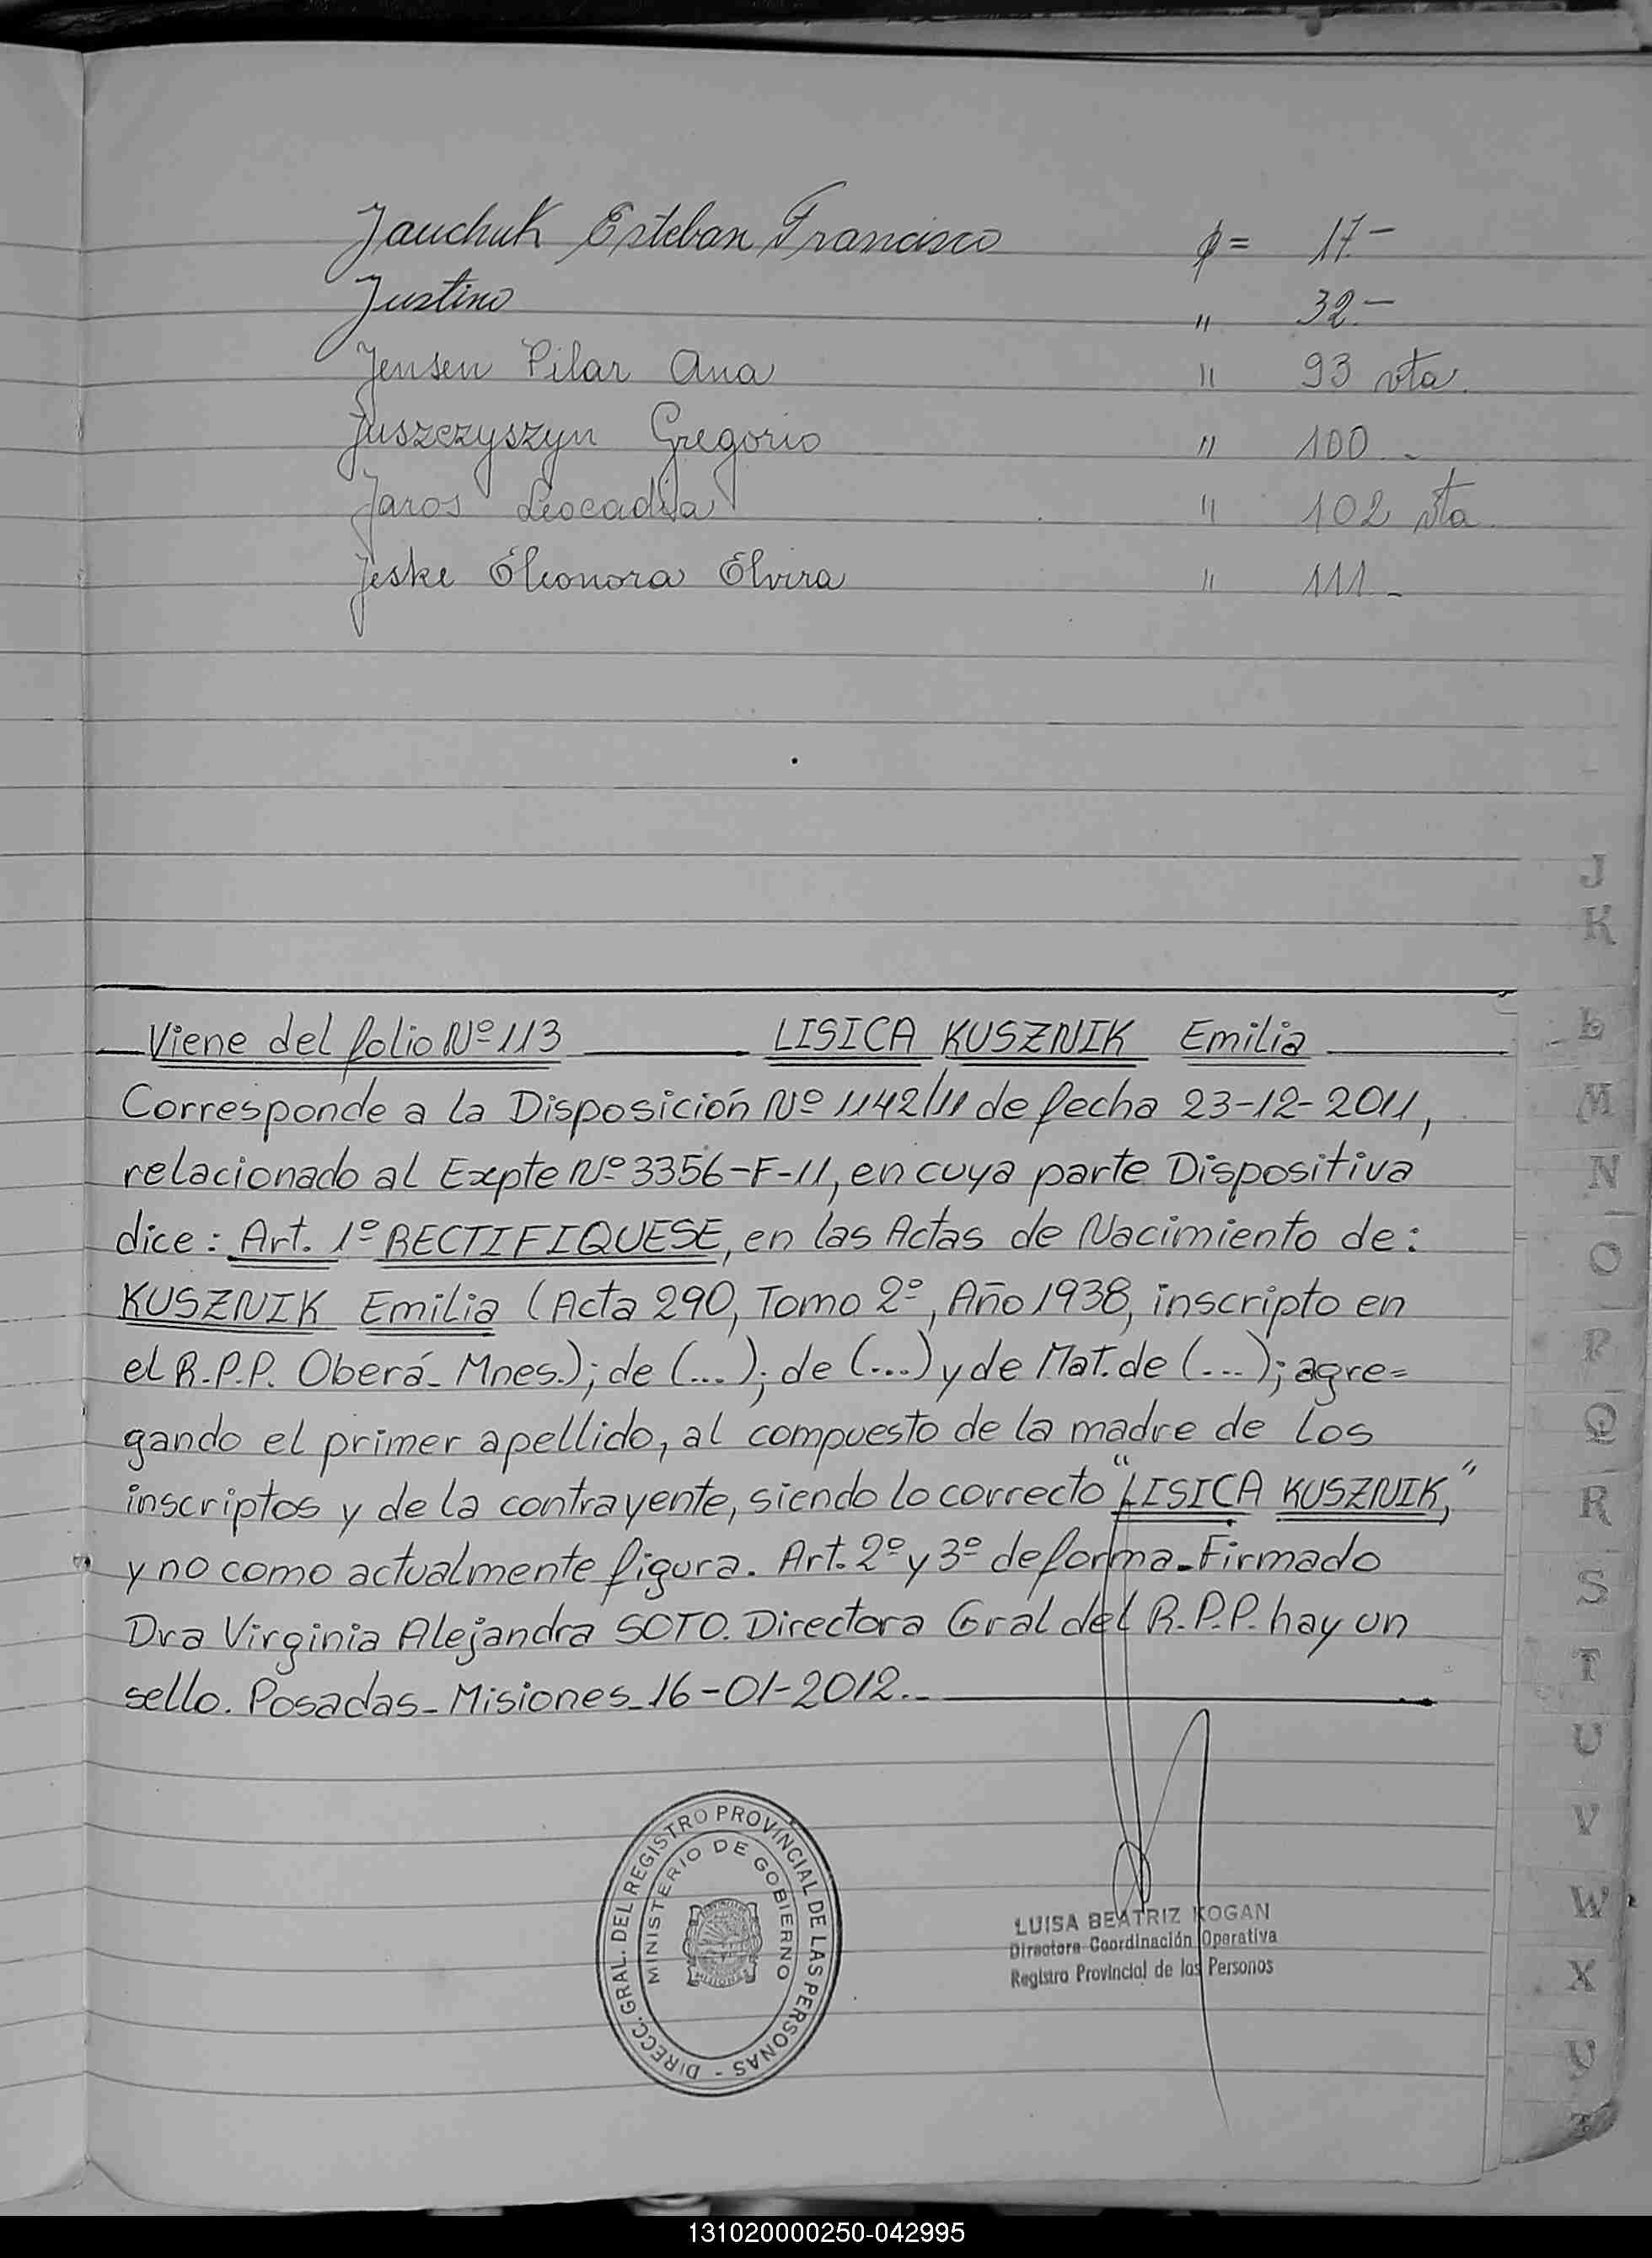 Jauchuk Esteban Francisco ф = 17.-
Justino " 32.-
Jensen Pilar Ana " 93 vta.
Juszczyszyn Gregorio " 100.-
Jaros Leocadia " 102 vta
Jeske Eleonora Elvira " 111.-
Viene del folio Nº 113 LISICA KUSZNIK Emilia
Corresponde a la Disposición Nº 1142/11 de fecha 23-12-2011,
relacionado al Expte Nº 3356-F-11, en cuya parte Dispositiva
dice: Art. 1º RECTIFIQUESE, en las Actas de Nacimiento de:
KUSZNIK Emilia (Acta 290, Tomo 2º, Año 1938, inscripto en
el R.P.P. Oberá- Mnes.); de (...); de (...) y de Mat. de (...); agre=
gando el primer apellido, al compuesto de la madre de los
inscriptos y de la contrayente, siendo lo correcto "LISICA KUSZNIK,"
y no como actualmente figura. Art. 2º y 3º de forma.- Firmado
Dra Virginia Alejandra SOTO. Directora Gral del R.P.P. hay un
sello. Posadas- Misiones- 16-01-2012.-
DIRECC. GRAL. DEL REGISTRO PROVINCIAL DE LAS PERSONAS -
MINISTERIO DE GOBIERNO
MISIONES
LUISA BEATRIZ KOGAN
Directora Coordinación Operativa
Registro Provincial de las Personas
J
K
L
M
N
O
P
Q
R
S
T
U
V
W
X
Y
Z
131020000250-042995